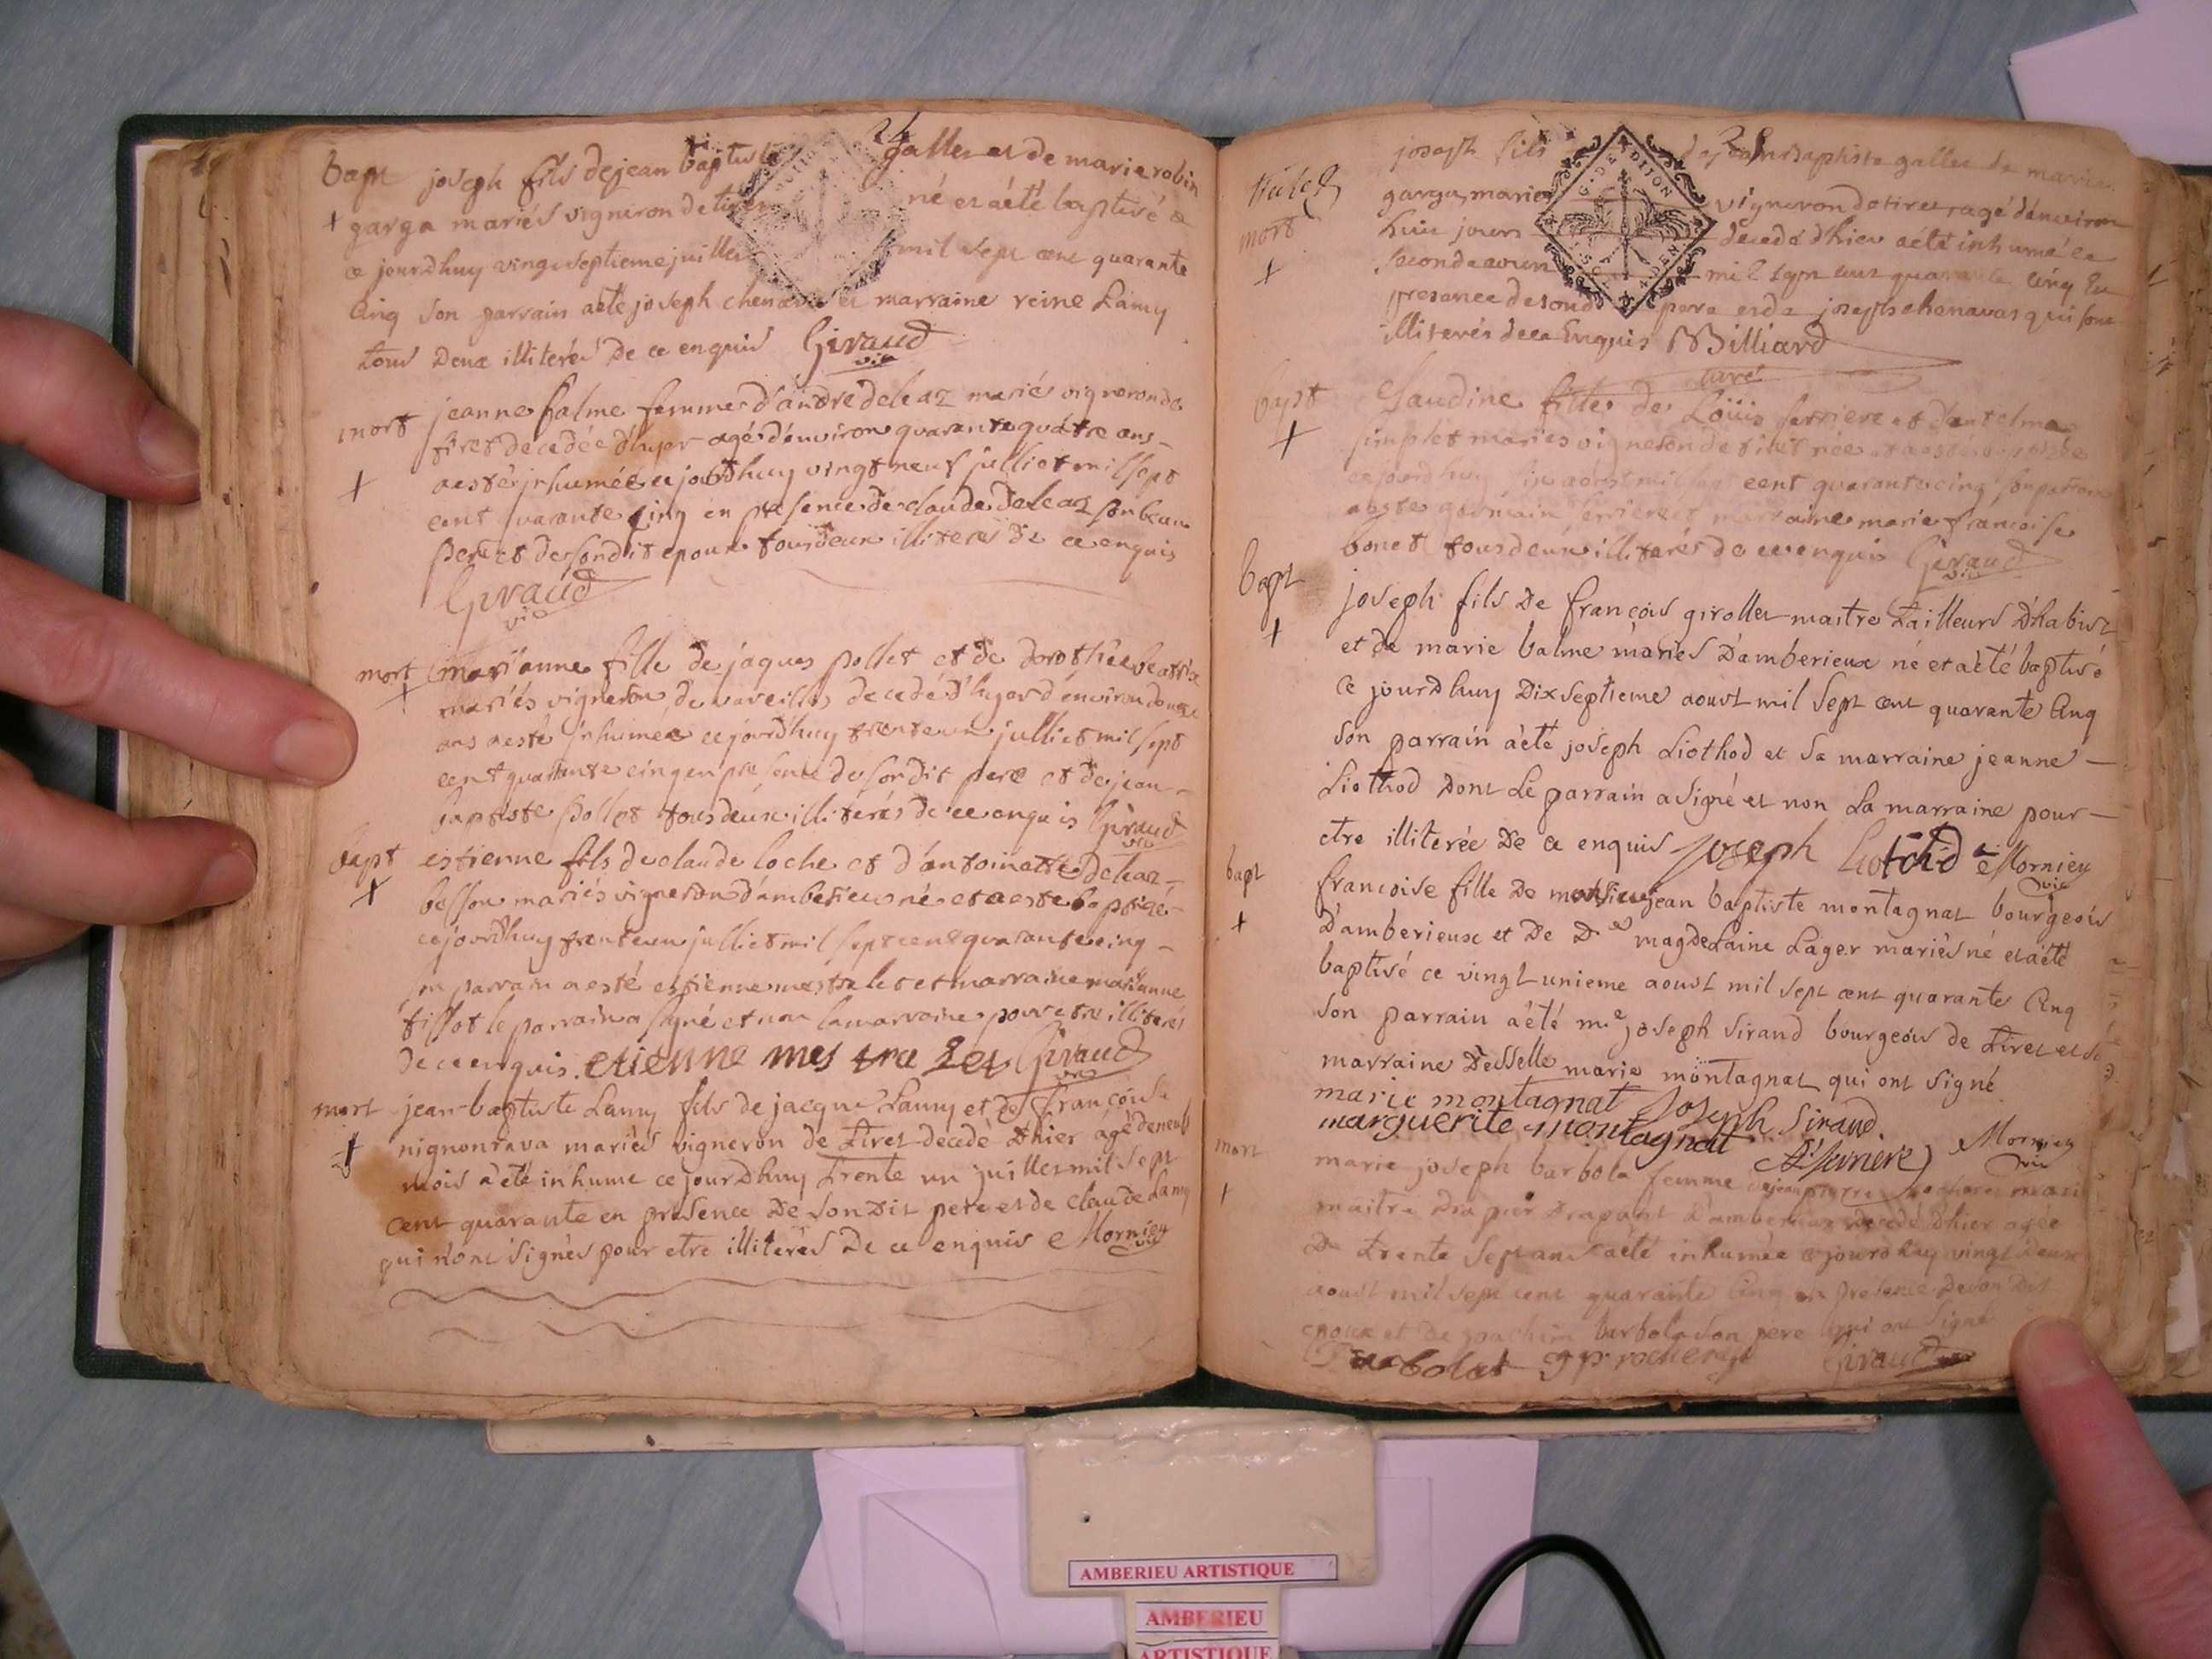 24
bapt joseph fils de jean baptiste galles et de marie robin
garga mariés vigneron de tiret né et aèté baptisé
ce jourdhuy vingt septieme juillet mil sept cent quarante
Cinq son parrain aèté joseph et marraine reine Lamy
tous Deux illiterés De ce enquis Giraud vic
mort jeanne balme femme d'andré deleaz mariés vigneron de
tiret decedée d'hyer agée d'environ quarante quatre ans
aesté jnhumée ce jourdhuy vingt neuf julliet mil sept
cent quarante cinq en presence de claude deleaz son beau
pere et de sondit epoux tous deux illiterés de ce enquis
Giraud vic
mort marianne fille de jaques pollet et de dorothée beatrix
mariés vigneron de vareilles decedé d'hyer d'environ douze
ans aesté jnhumée cejourdhuy trente un julliet mil sept
cent quarante cinq en presence de sondit pere et de jean
baptiste pollet tous deux illiterés de ce enquis Giraud vic
bapt estienne fils de claude loche et d'antoinette deleaz
besson mariés vigneron d'amberieux né et aesté baptizé
cejourdhuy trente un julliet mil sept cent quarante cinq
son parrain aesté estienne mestralet et marraine marianne
tillot le parrain a signé et non la marraine pour etre illiterés
de ce enquis. etienne mes tra let Giraud vic
mort jean-baptiste Lamy fils de jacque Lamy et de françoise
nignonrava mariés vigneron de tiret decedé d'hier agé de neuf
mois a été inhumé ce jourdhuy trente un juillet mil sept
cent quarante en presence De son Dit pere et de claude Lamy
qui n'ont signés pour etre illiterés De ce enquis Morniey vic
28
joseph fils de jean baptiste galles de marie
G. D. ENDITON
mort garga, mariés vigneron de tiret, agé d'environ
huit jours decedé d'hier aété inhumé ce
second aoust mil sept cent quarante cinq en
presence de sondit pere et de joseph chenavas qui sont
illiterés de ce enquis Billiard
curé
bapt Claudine fille de Loüis ferriere et d'antelme
simplet mariés vigneron de tiret née et aesté
ce jourdhuy aoust mil sept cent quarante cinq son parrain
aesté germain ferriere et marraine marie francoise
bonet tous deux illiterés de ce enquis Giraud vic
bapt joseph fils De françois girollet maitre tailleurs D'habist
et de marie balme mariés D'amberieux né et aèté baptisé
ce jourdhuy Dix septieme aoust mil sept cent quarante Cinq
son parrain àèté joseph Liothod et sa marraine jeanne
Liothod Dont Le parrain a signé et non La marraine pour
etre illiterée De ce enquis joseph liotod Morniey vic
bapt francoise fille De monsieur jean baptiste montagnat bourgeois
D'amberieux et De De magdelaine Lager mariés né et aété
baptisé ce vingt unieme aoust mil sept cent quarante Cinq
son parrain àété me joseph Sirand bourgeois de tiret et sa
marraine Desselle marie montagnat qui ont signé
marie montagnat Joseph Sirand.
marguerite montagnat Morniey vic
mort marie joseph barbola femme de jean pierre rochere mari
maitre Drapier Drapant D'amberieux decedé D'hier agée
De trente sept ans aété inhumée ce jourdhuy vingt Deux
aoust mil sept cent quarante Cinq en presence De son Dit
epoux et de joachim barbola son pere qui ont signé
Barbolat Giraud
AMBERIEU ARTISTIQUE
AMBERIEU
ARTISTIQUE